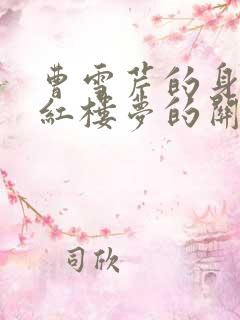 曹雪芹的身
紅樓夢的開
司欣